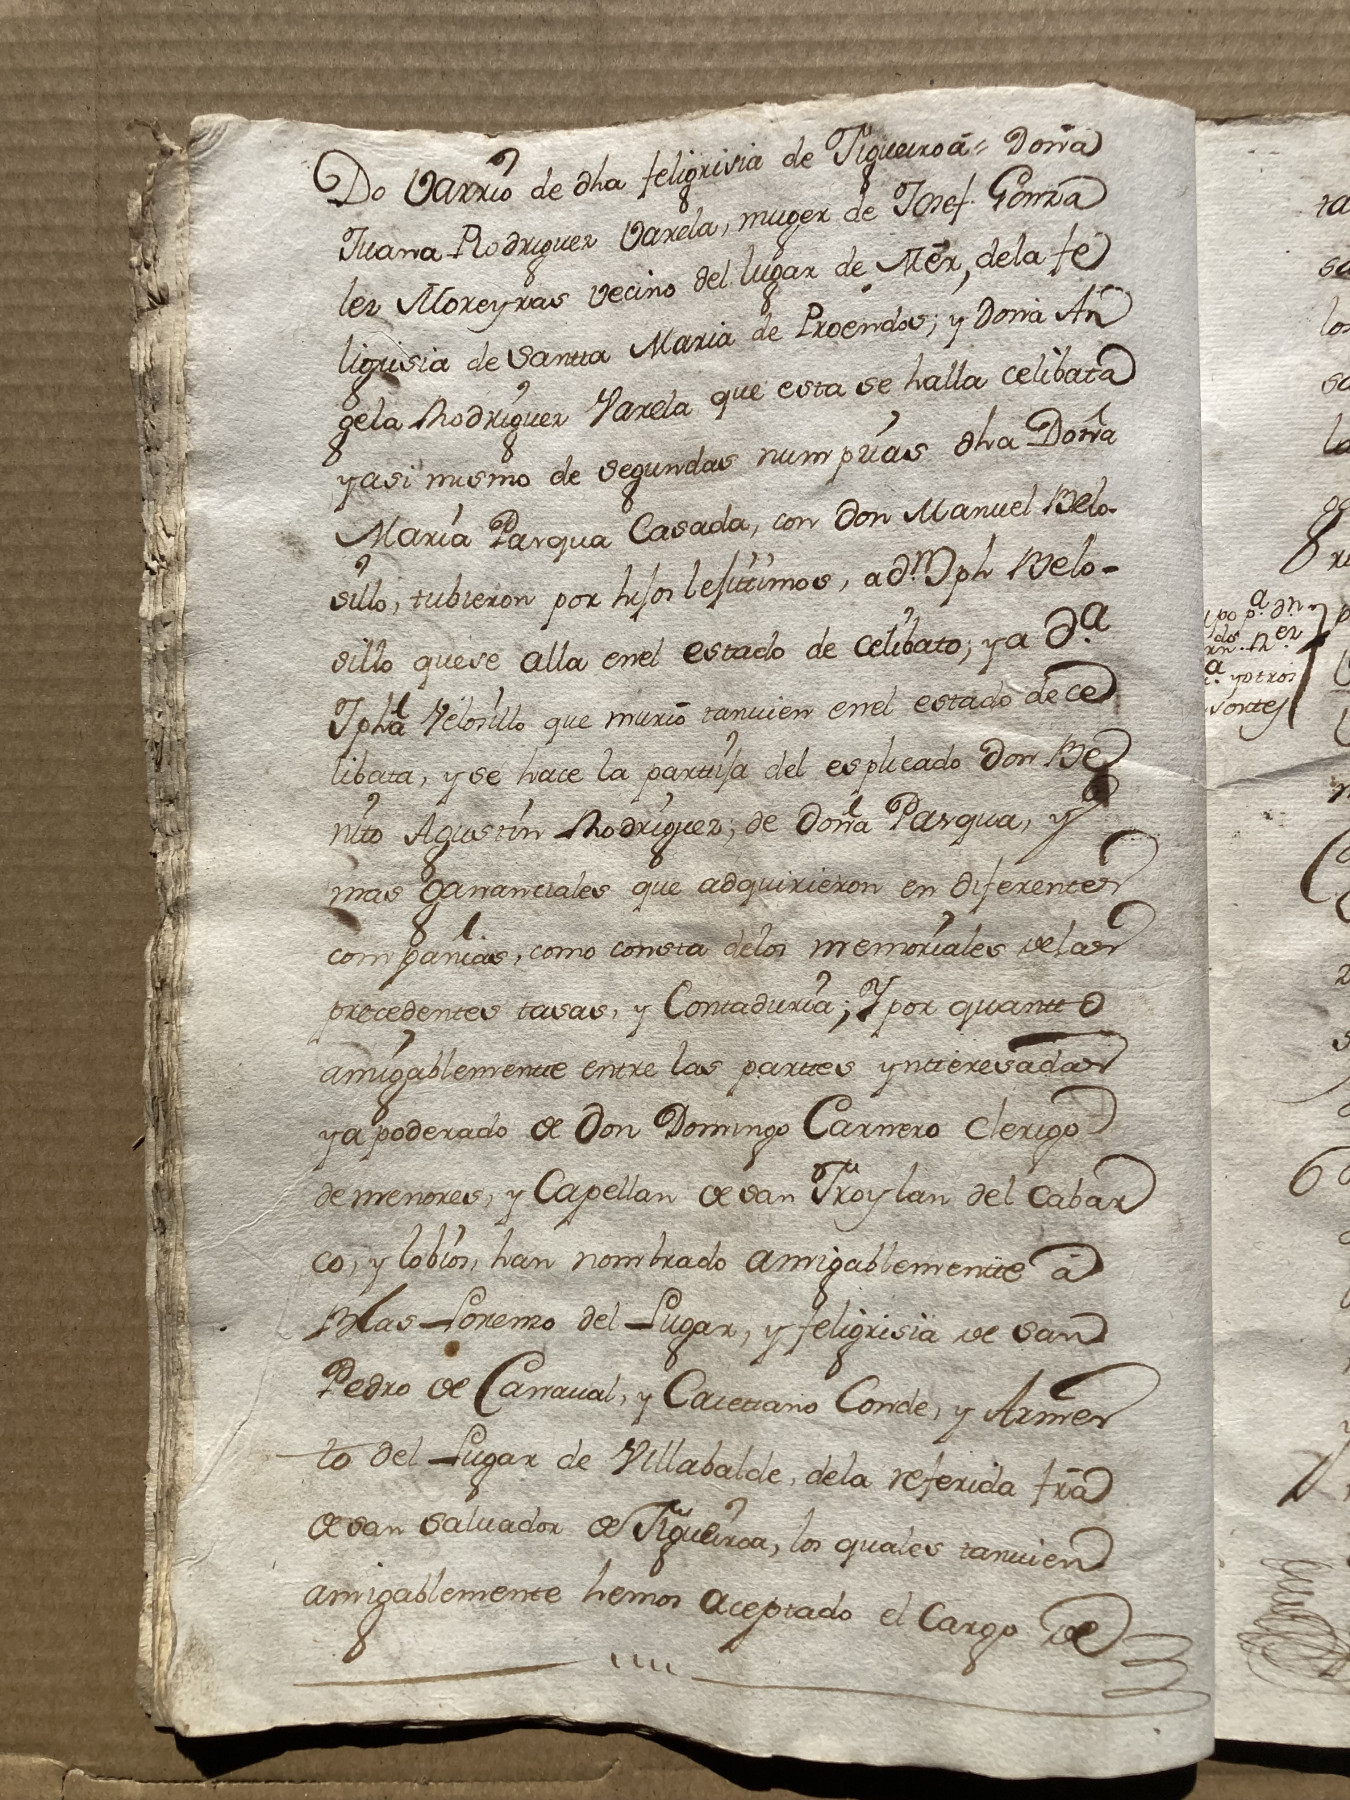 Do Varrio de dha feligrisia de Figueiroá = Doña
Juana Rodriguez Varela, muger de Josef Gonza
lez Moreyras vecino del lugar de Mér, dela fe
ligrisia de Santta Maria de Proendos; y doña An
gela Rodriguez Varela que esta se halla celibata
yasi mismo de segundas numpzias dha Doña
Maria Pasqua Casada, con don Manuel Belo-
sillo, tubieron por hijos lejitimos, a dn Jph Belo-
sillo quese alla enel estado de celibato; ya Da
Jpha Velosillo que murio tanvien enel estado de ce
libata, y se hace la partija del esplicado don Be
nito Agustin Rodriguez; de doña Pasqua, y
mas gananciales que adquirieron en diferentes
compañias, como consta delos memoriales de las
precedentes tasas, y Contaduria; Y por quantto
amigablemente entre las parttes ynteresadas
yapoderado de don Domingo Carnero Clerigo
de menores, y Capellan de san Froylan del Cabar
co, y lobios, han nombrado amigablemente á
Blas Lorenzo del Lugar, y feligrisia de san
Pedro de Canaval, y Caietano Conde, y Armes
to del Lugar de Villabalde, dela referida fra
de san Salvador de Figueiroa, los quales tanvien
amigablemente hemos aceptado el Cargo de
ta
sa
los
sa
la
po pa dn
dos
y otros